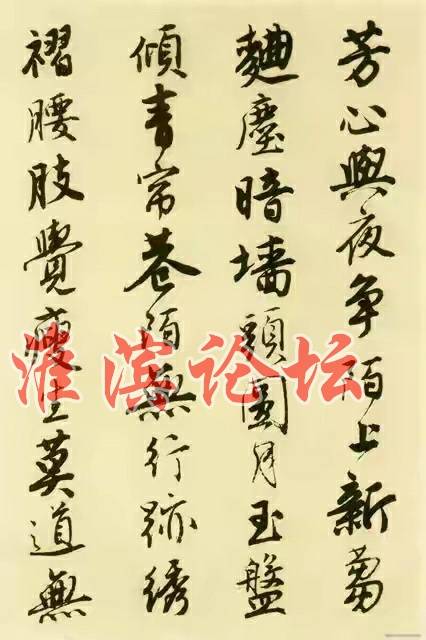 芳心與夜争陌上新蒭
麯塵暗墙頭圓月玉盤
傾青帘巷陌無行跡綉
褶腰肢覺瘦生莫道無
淮滨论坛